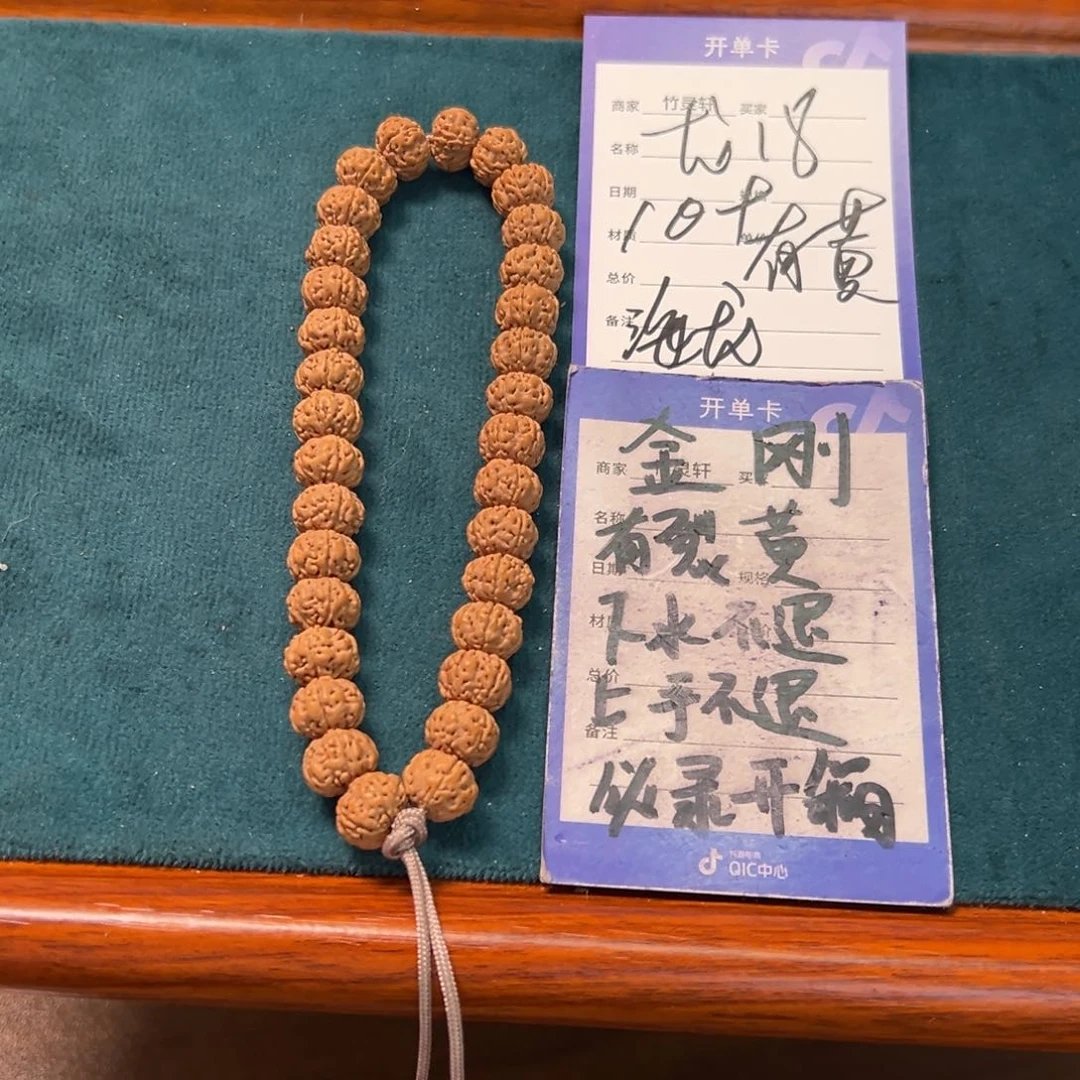 开单卡
商家 竹灵轩 买家
龙18
名称
日期
10+有黄
材质
总价
海龙
备注
开单卡
金刚
商家 灵轩 买
名称
有裂黄
日期 规格
下水不退
材
总价
上手不退
备注
必录开箱
抖音电商
QIC中心